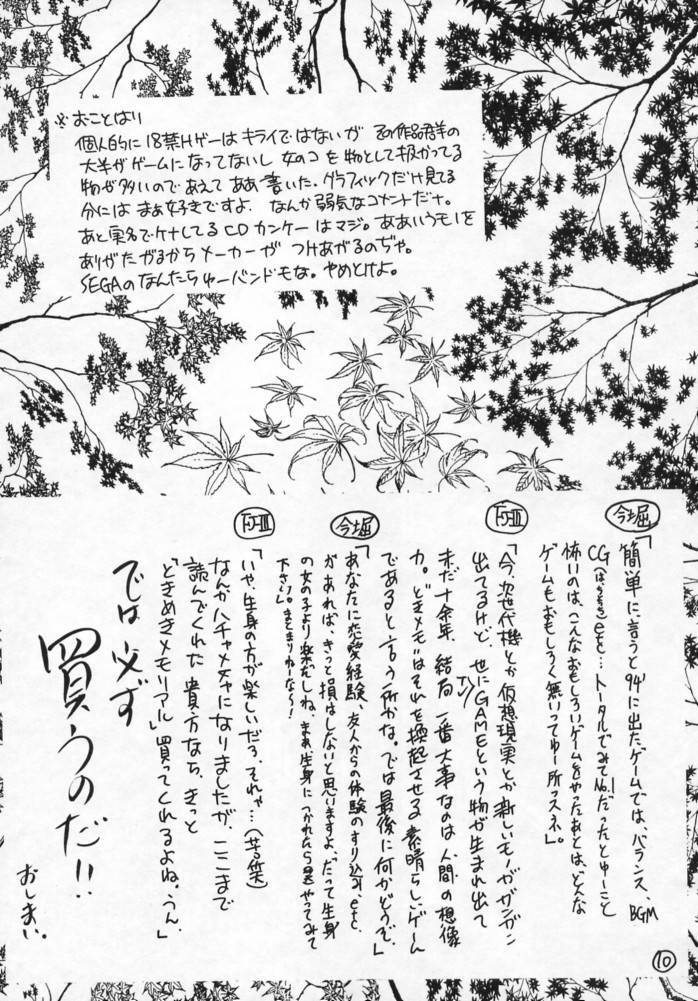 ※おことはり
個人的に18禁Hゲーはキライではないが その作品群の
大半がゲームになってないし 女のコを物として扱かってる
物が多いのであえてああ書いた。グラフィックだけ見てる
分には まぁ好きですよ. なんか弱気なコメントだナ。
あと実名でケナしてるCDカンケーはマジ。ああいうモノを
ありがたがるからメーカーが つけあがるのぢゃ。
SEGAのなんたらゆーバンドモナ。やめとけよ。
今堀
「簡単に、言うと94'に出たゲームでは、バランス、BGM
CG etc…トータルでみてNo.1だったとゆーこと
怖いのは、こんなおもしろいゲームをやったあとは、どんな
ゲームもおもしろく無いってゆー所っスネ」。
「今、次世代機とか仮想現実とか新しいモノがガンガン
出てるけど、世にGAMEという物が生まれ出て
未だ十余年、結局一番大事なのは人間の想像
力。"ときメモ"はそれを喚起させる素晴らしいゲーム
であると言う所かな。では最後に何かどうぞ。」
今堀
「あなたに恋愛経験、友人からの体験のすり込み etc
があれば、きっと損はしないと思いますよ、だって生身
の女の子より楽だしね、まぁ、生身につかれたら是非やってみて
下さい。まとまりゆーな〜!
「いや、生身の方が楽しいだろ、それゃ…(苦笑)
なんかハチャメチャになりましたが、ここまで
読んでくれた貴方なら、きっと
「ときめきメモリアル」買ってくれるよね。うん。」
では必ず
買うのだ!!
おしまい。
10